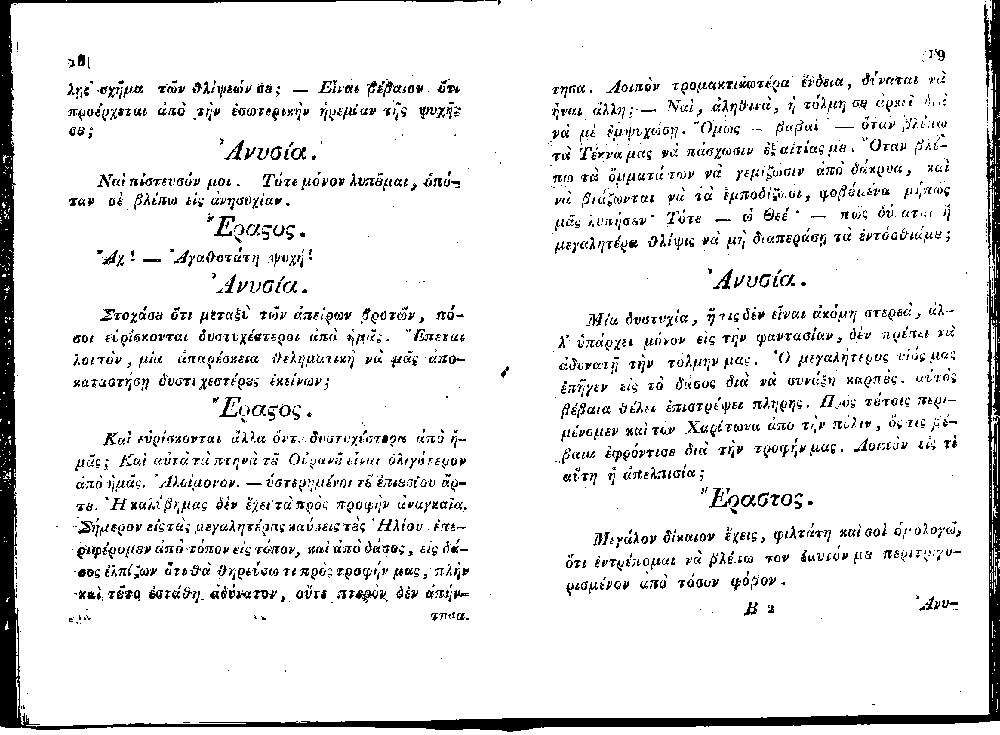 18
λῃς σχῆμα τῶν θλίψεών σȣ; — Εἶναι βέβαιον ὅτι
προέρχεται ἀπὸ τὴν ἐσωτερικὴν ἠρεμίαν τῆς ψυχῆς
σȣ;
Ἀνυσία.
Ναὶ πίστευσόν μοι. Τότε μόνον λυπȣ͂μαι, ὁπό-
ταν σὲ βλέπω εἰς ἀνησυχίαν.
Ἔραϛος.
Ἄχ! — Ἀγαθοτάτη ψυχή!
Ἀνυσία.
Στοχάσȣ ὅτι μεταξὺ τῶν ἀπείρων βροτῶν, πό-
σοι εὑρίσκονται δυστυχέστεροι ἀπὸ ἡμᾶς. Ἕπεται
λοιπὸν, μία ἀπαρέσκεια θεληματικὴ νὰ μᾶς ἀπο-
καταστήσῃ δυστυχεστέρȣς ἐκείνων;
Ἔραϛος.
Καὶ εὑρίσκονται ἄλλα ὄντα δυστυχέστερα ἀπὸ ἡ-
μᾶς; Καὶ αὐτὰ τὰ πτηνὰ τȣ͂ Οὐρανȣ͂ εἶναι ὀλιγότερον
ἀπὸ ἡμᾶς. Ἀλοίμονον. — ὑστερημένοι τȣ͂ ἐπιȣσίου ἄρ-
τȣ. Ἡ καλύβη μας δὲν ἔχει τὰ πρὸς τροφὴν ἀναγκαῖα.
Σήμερον εἰς τὰς μεγαλητέρας καύσεις τȣ͂ Ἡλίου ἐπε-
ριφέρομȣν ἀπὸ τόπον εἰς τόπον, καὶ ἀπὸ δάσος, εἰς δά-
σος ἐλπίζων ὅτι θὰ θηρεύσω τι πρὸς τροφήν μας, πλὴν
καὶ τȣ͂το ἐστάθη ἀδύνατον, οὔτε πτερὸν δὲν ἀπήν-
τησα.
19
τησα. Λοιπὸν τρομακτικωτέρα ἔνδεια, δύναται νὰ
ἦναι ἄλλη; — Ναὶ, ἀληθινὰ, ἡ τόλμη σȣ ἀρκεῖ διὰ
νὰ μὲ ἐμψυχώσῃ. Ὅμως — βαβαὶ — ὅταν βλέπω
τὰ Τέκνα μας νὰ πάσχωσιν ἐξ αἰτίας μȣ. Ὅταν βλέ-
πω τὰ ὄμματά των νὰ γεμίζωσιν ἀπὸ δάκρυα, καὶ
νὰ βιάζωνται νὰ τὰ ἐμποδίζωσι, φοβȣ́μενα μήπως
μᾶς λυπήσȣν· Τότε — ὦ Θεέ· — πῶς δύναται ἡ
μεγαλητέρα θλίψις νὰ μὴ διαπεράσῃ τὰ ἐντόσθιάμȣ;
Ἀνυσία.
Μία δυστυχία, ἥτις δὲν εἶναι ἀκόμη στερεὰ, ἀλ-
λ' ὑπάρχει μόνον εἰς τὴν φαντασίαν, δὲν πρέπει νὰ
ἀδυνατῇ τὴν τόλμην μας. Ὁ μεγαλήτερος υἱός μας
ἐπῆγεν εἰς τὸ δάσος διὰ νὰ συνάξῃ καρπȣ́ς. αὐτὸς
βέβαια θέλει ἐπιστρέψει πλήρης. Πρὸς τȣ́τοις περι-
μένομεν καὶ τὸν Χαρίτωνα ἀπὸ τὴν πόλιν, ὅςτις βέ-
βαια ἐφρόντισε διὰ τὴν τροφήν μας. Λοιπὸν εἰς τὶ
αὕτη ἡ ἀπελπισία;
Ἔραστος.
Μεγάλον δίκαιον ἔχεις, φιλτάτη καὶ σοὶ ὁμολογῶ,
ὅτι ἐντρέπομαι νὰ βλέπω τὸν ἑαυτόν μȣ περιτριγυ-
ρισμένον ἀπὸ τόσον φόβον.
Β 2
Ἀνυ-